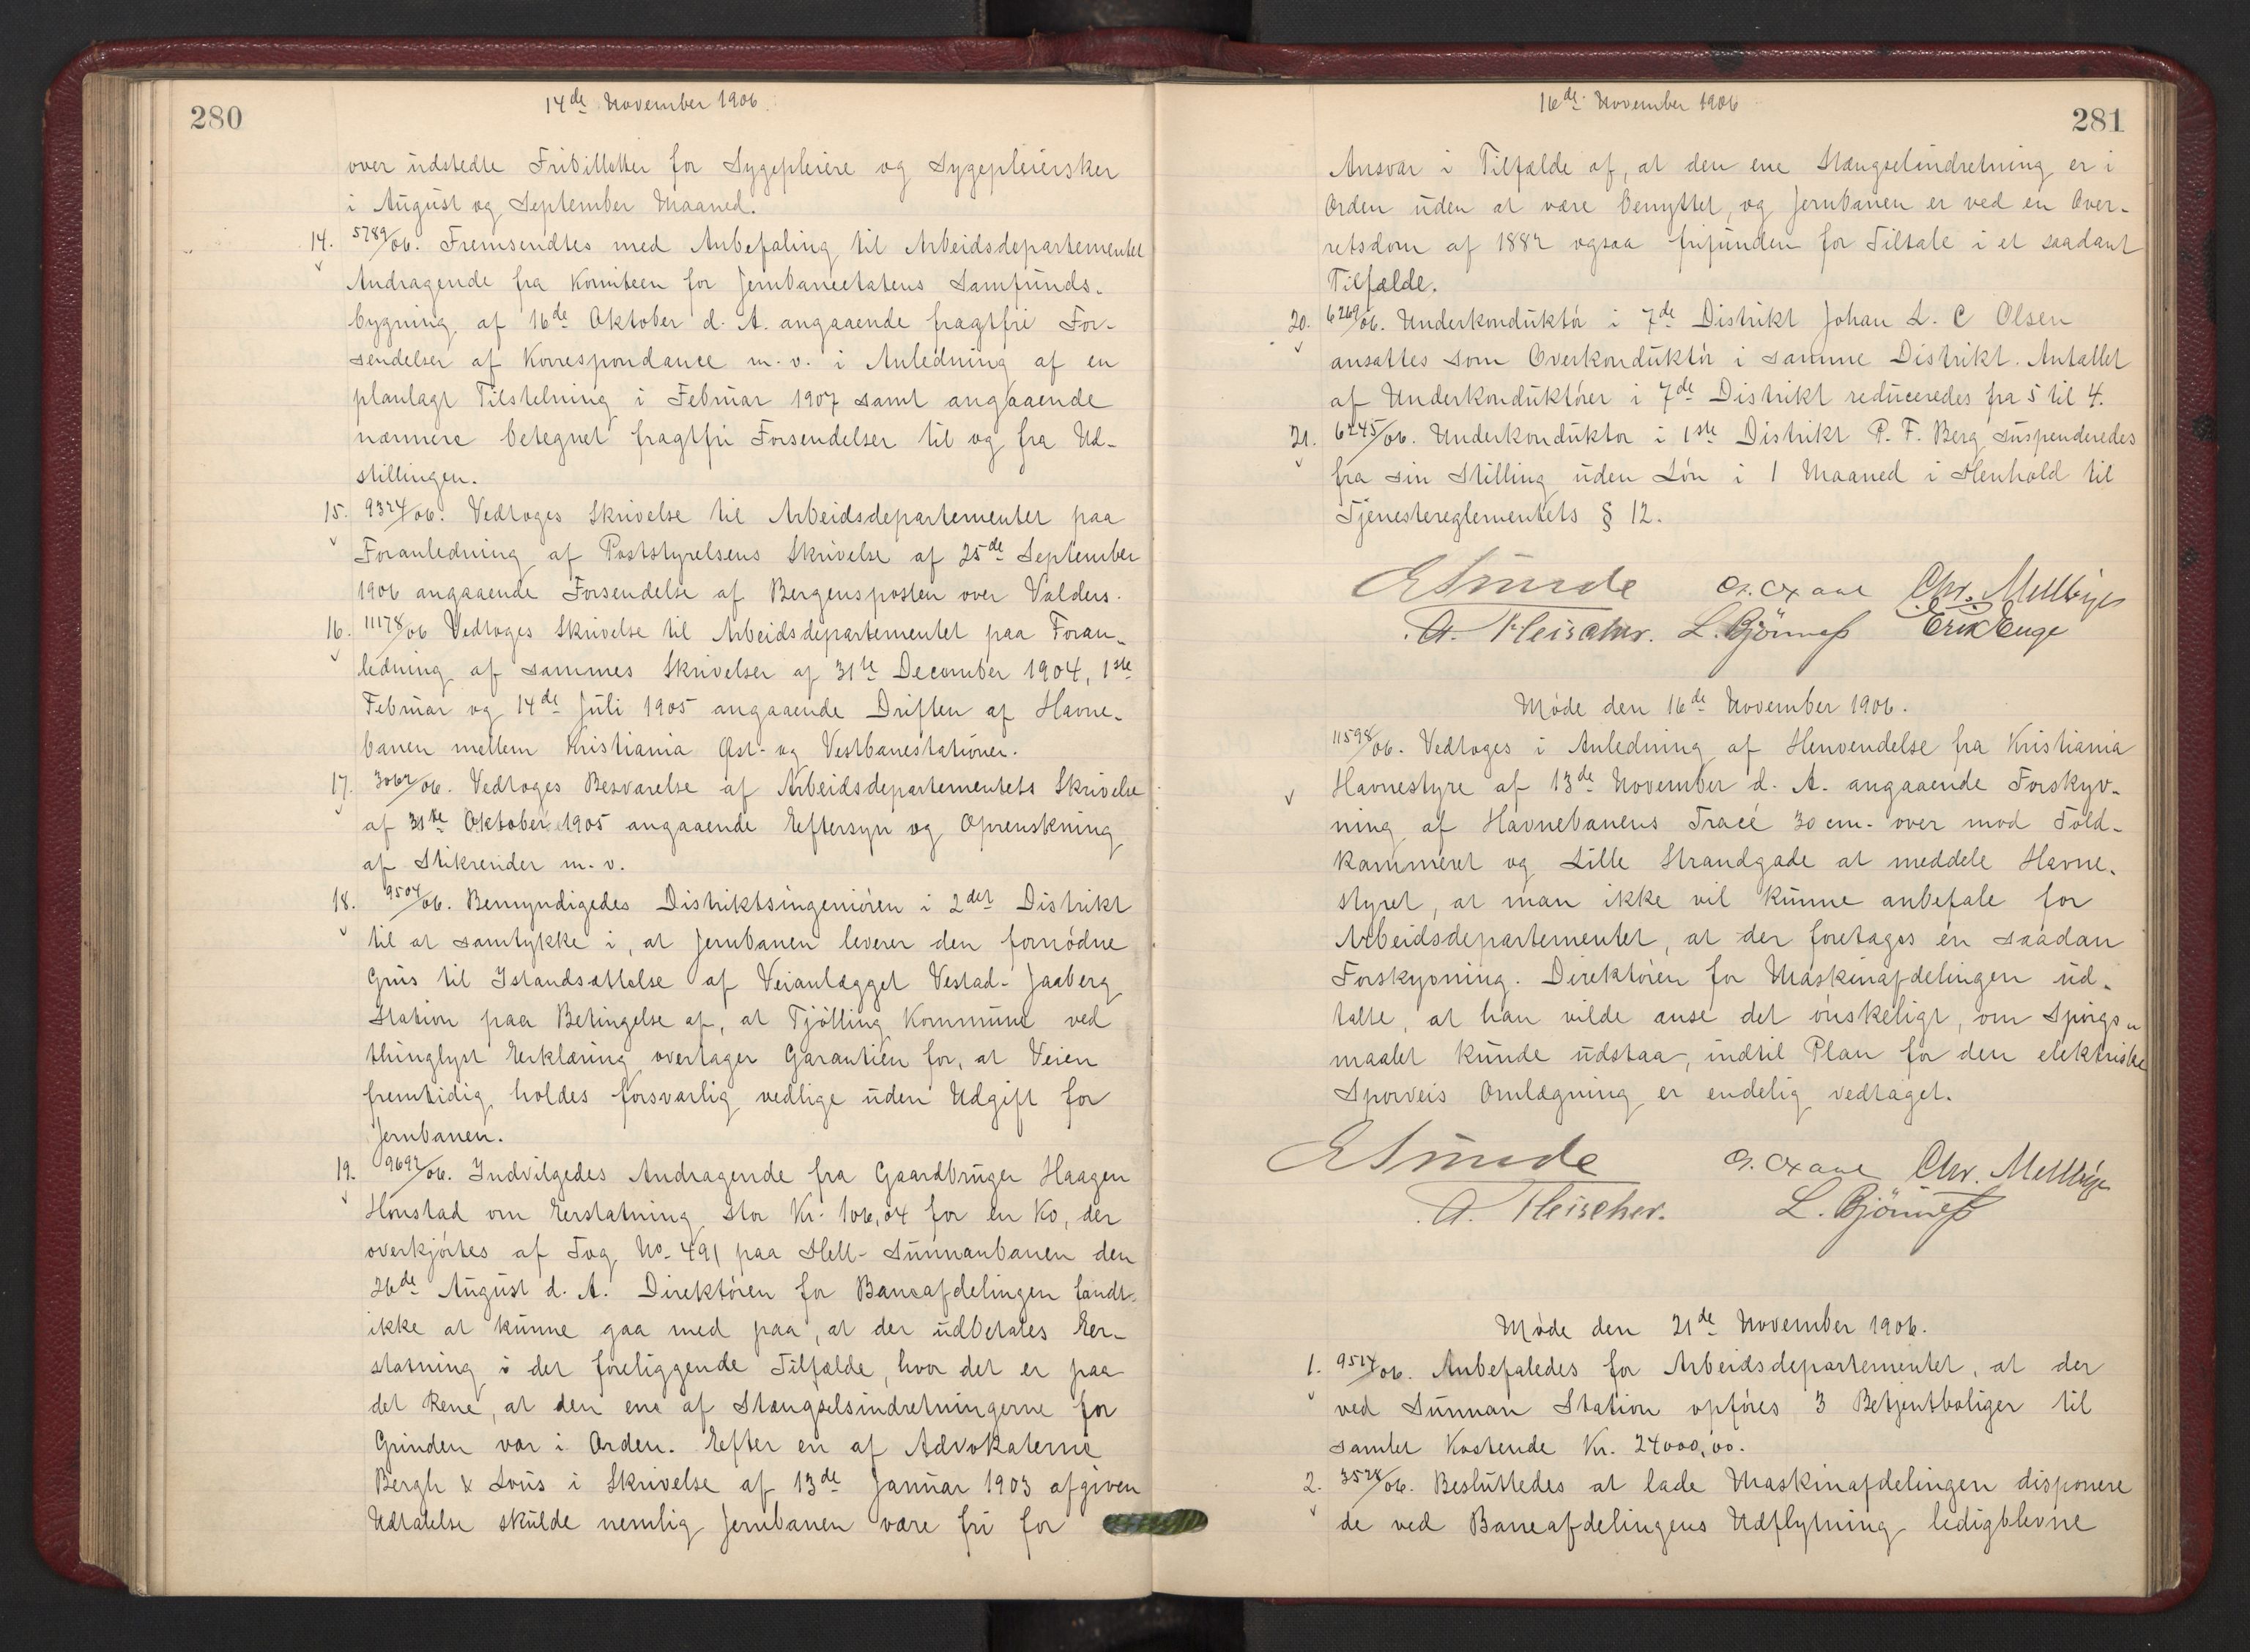 280
14de November 1906.
over udstedte Fribilletter for Sygepleiere og Sygepleiersker
i August og September Maaned.
14. 5789/06. Fremsendtes med Anbefaling til Arbeidsdepartementet
Andragende fra Komiteen for Jernbaneetatens Samfunds-
bygning af 16de Oktober d. A. angaaende fragtfri For-
sendelser af Korrespondance m. v. i Anledning af en
planlagt Tilstelning i Februar 1907 samt angaaende
nærmere betegnet fragtfri Forsendelser til og fra Ud-
stillingen.
15. 9324/06. Vedtoges Skrivelse til Arbeidsdepartementet paa
Foranledning af Poststyrelsens Skrivelse af 25de September
1906 angaaende Forsendelse af Bergensposten over Valders.
16. 11178/06 Vedtoges Skrivelse til Arbeidsdepartementet paa Foran-
ledning af sammes Skrivelser af 31te December 1904, 1ste
Februar og 14de Juli 1905 angaaende Driften af Havne-
banen mellem Kristiania Øst- og Vestbanestationer.
17. 3062/06. Vedtoges Besvarelse af Arbeidsdepartementets Skrivelse
af 31te Oktober 1905 angaaende Eftersyn og Oprenskning
af Stikrender m. v.
18. 9504/06. Bemyndigedes Distriktsingeniøren i 2det Distrikt
til at samtykke i, at Jernbanen leverer den fornødne
Grus til Istandsættelse af Veianlægget Vestad-Jaaberg
Station paa Betingelse af, at Tjølling Kommune ved
thinglyst Erklæring overtager Garantien for, at Veien
fremtidig holdes forsvarlig vedlige uden Udgift for
Jernbanen.
19. 9692/06. Indvilgedes Andragende fra Gaardbruger Haagen
Honstad om Erstatning stor Kr. 106,04 for en Ko, der
overkjørtes af Tog No. 491 paa Hell-Sunnanbanen den
26de August d. A. Direktøren for Baneafdelingen fandt
ikke at kunne gaa med paa, at der udbetales Er-
statning i det foreliggende Tilfælde, hvor det er paa
det Rene, at den ene af Stængselsindretningerne for
Grinden var i Orden. Efter en af Advokaterne
Bergh & Lous i Skrivelse af 13de Januar 1903 afgiven
Udtalelse skulde nemlig Jernbanen være fri for
16de November 1906
281
Ansvar i Tilfælde af, at den ene Stængselindretning er i
Orden uden at være benyttet, og Jernbanen er ved en Over-
retsdom af 1882 ogsaa frifunden for Tiltale i et saadant
Tilfælde.
20. 6269/06. Underkonduktør i 7de Distrikt Johan L. C Olsen
ansattes som Overkonduktør i samme Distrikt. Antallet
af Underkonduktører i 7de Distrikt reduceredes fra 5 til 4.
21. 6245/06. Underkonduktør i 1ste Distrikt P. F. Berg suspenderedes
fra sin Stilling uden Løn i 1 Maaned i Henhold til
Tjenestereglementets § 12.
E Sunde Chr. Mellbye
A. Fleischer. L. Bjönness Erik Enge
Møde den 16de November 1906.
11598/06. Vedtoges i Anledning af Henvendelse fra Kristiania
Havnestyre af 13de November d. A. angaaende Forskyv-
ning af Havnebanens Tracé 30 cm. over mod Told-
kammeret og Lille Strandgade at meddele Havne-
styret, at man ikke vil kunne anbefale for
Arbeidsdepartementet, at der foretages en saadan
Forskyvning. Direktøren for Maskinafdelingen ud-
talte, at han vilde anse det ønskeligt, om Spørgs-
maalet kunde udstaa, indtil Plan for den elektriske
Sporveis Omlægning er endelig vedtaget.
E Sunde Chr. Mellbye
A. Fleischer. L. Bjönness
Møde den 21de November 1906.
1. 9524/06. Anbefaledes for Arbeidsdepartementet, at der
ved Sunnan Station opføres 3 Betjentboliger til
samlet Kostende Kr. 24000,00.
2. 3528/06. Besluttedes at lade Maskinafdelingen disponere
de ved Baneafdelingens Udflytning ledigblevne